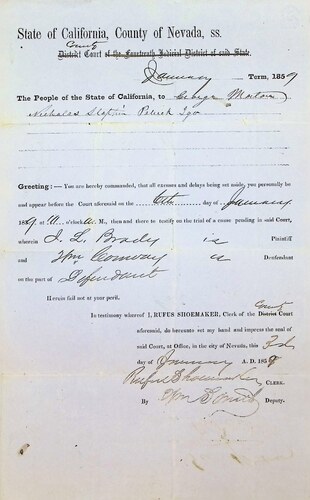 State of California, County of Nevada, ss.
County
District Court of the Fourteenth Judicial District of said State.
January Term, 1859
The People of the State of California, to George Morton
Nicholas Patrick
Greeting:—You are hereby commanded, that all excuses and delays being set aside, you personally be
and appear before the Court aforesaid on the 6th day of January
1859, at o'clock A. M., then and there to testify on the trial of a cause pending in said Court,
wherein J. L. Brady is Plaintiff
and Wm Conway is Defendant
on the part of Defendant
Herein fail not at your peril.
County
In testimony whereof I, RUFUS SHOEMAKER, Clerk of the District Court
aforesaid, do hereunto set my hand and impress the seal of
said Court, at Office, in the city of Nevada, this 3rd
day of January A. D. 1859
Rufus Shoemaker CLERK.
By Wm Deputy.